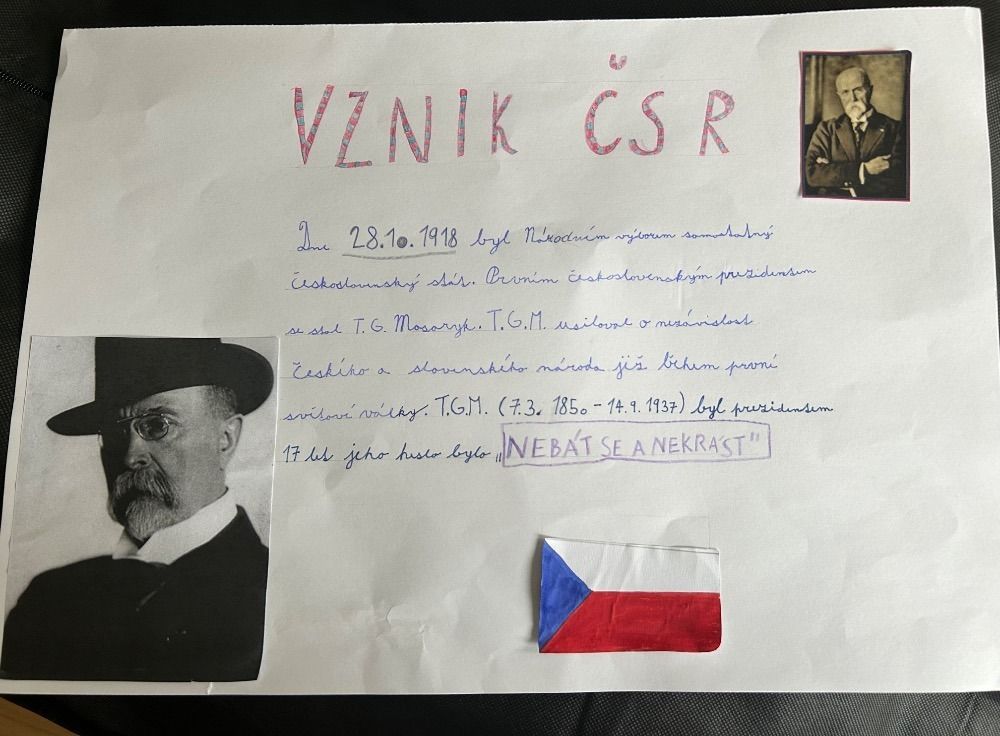 VZNIK ČSR
Dne 28.10.1918 byl Národním výborem samostatný
československý stát. Prvním československým prezidentem
se stal T. G. Masaryk. T.G.M. usiloval o nezávislost
českého a slovenského národa již během první
světové války. T.G.M. (7.3. 1850 - 14.9. 1937) byl prezidentem
17 let jeho heslo bylo „NEBÁT SE A NEKRÁST"